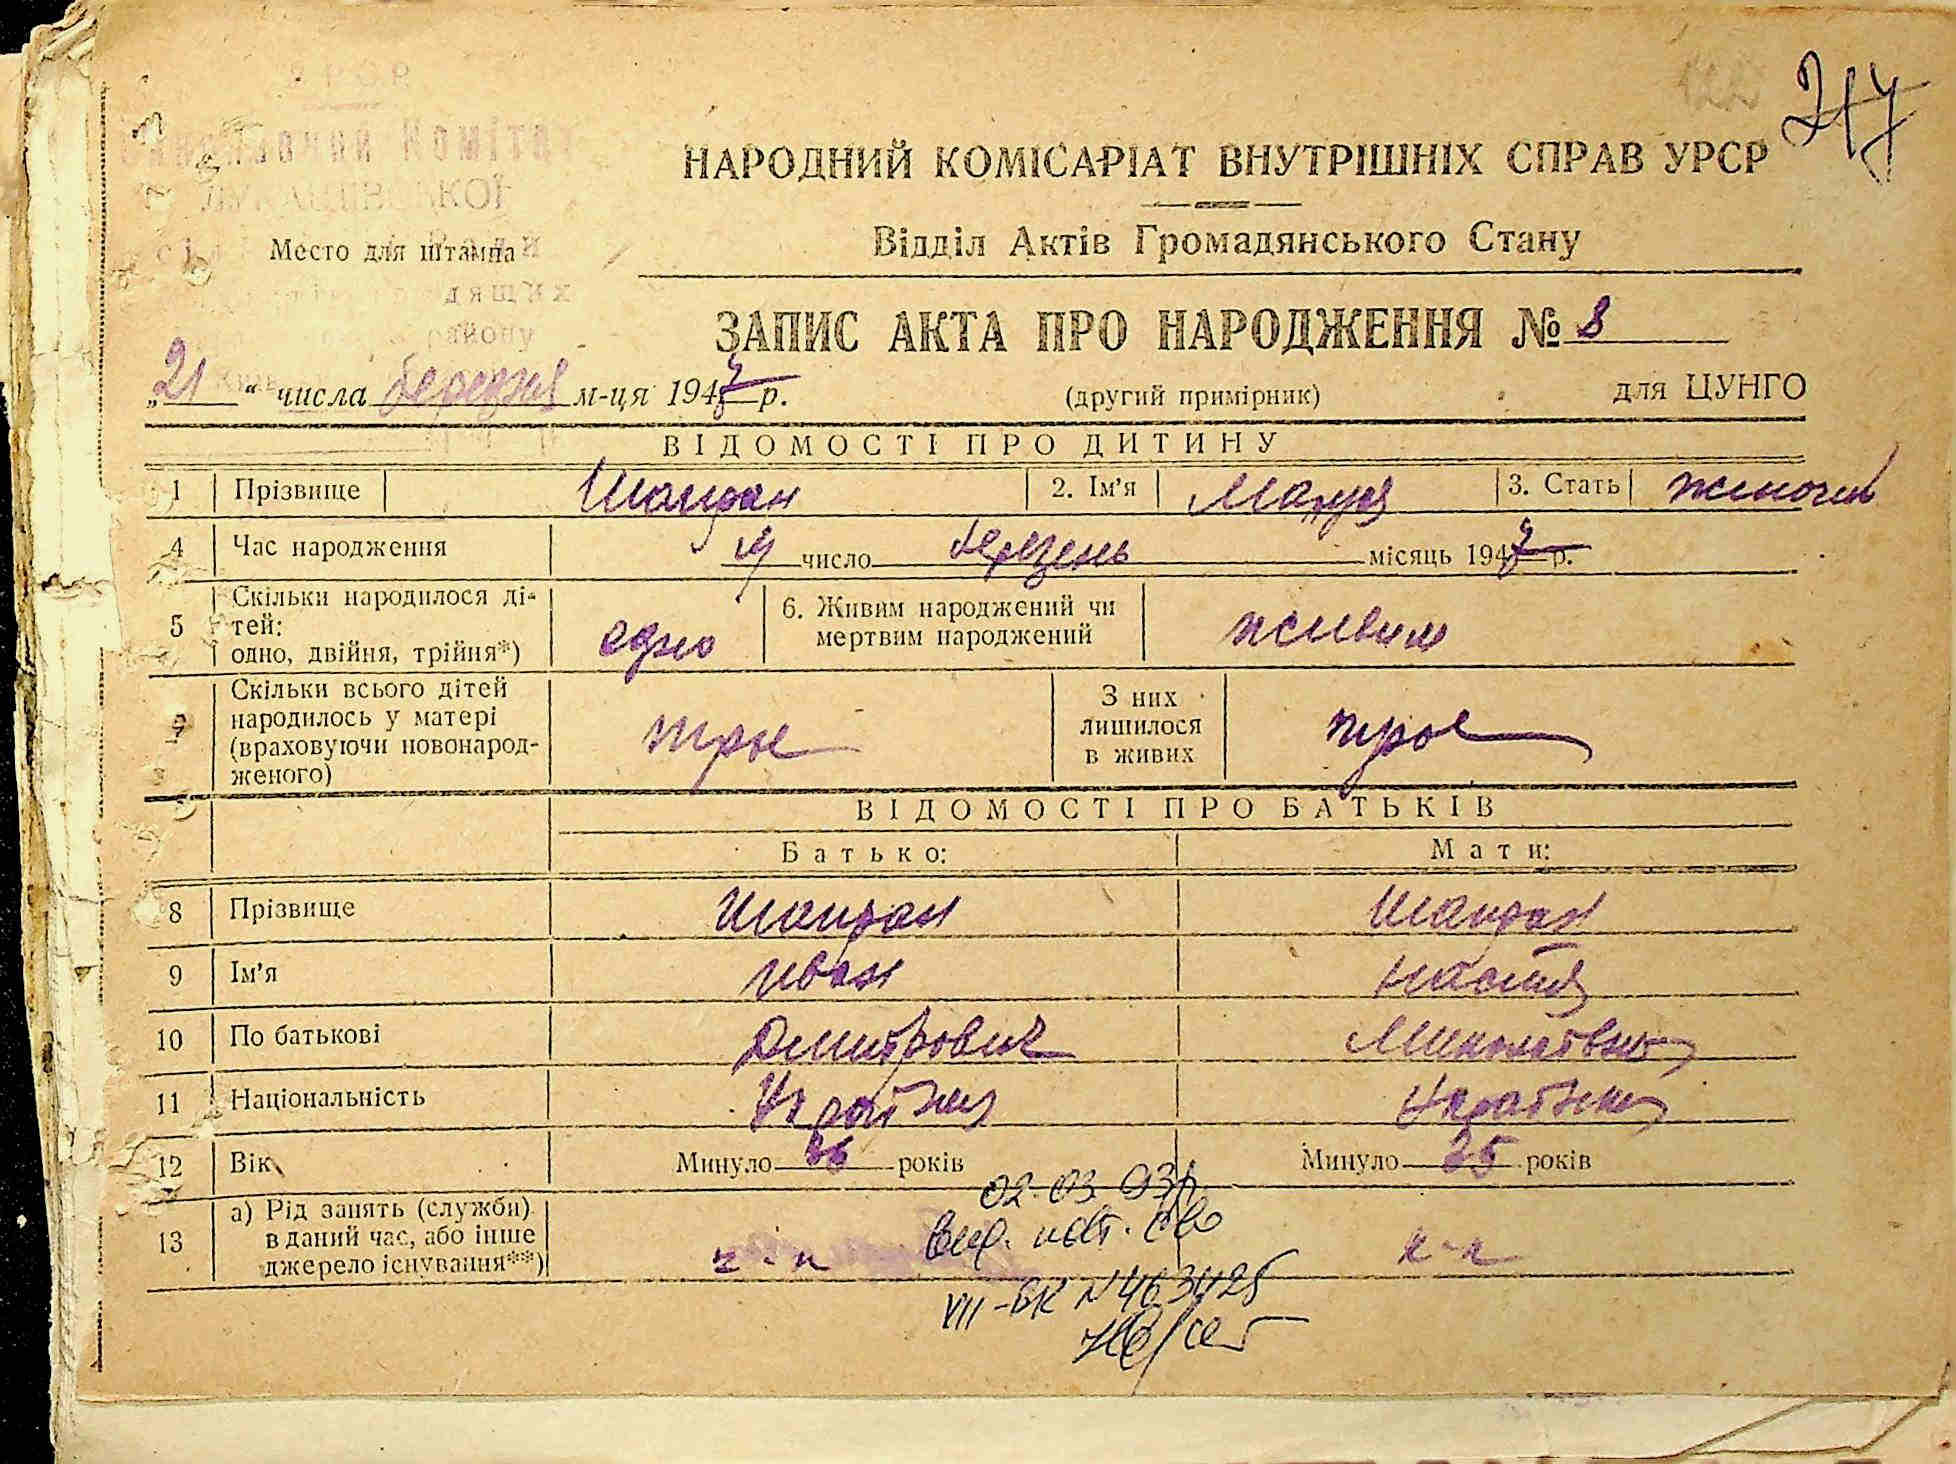 217
НАРОДНИЙ КОМІСАРІАТ ВНУТРІШНІХ СПРАВ УРСР
Відділ Актів Громадянського Стану
Место для штампа
ЗАПИС АКТА ПРО НАРОДЖЕННЯ № 8
„21“ числа березня м-ця 1947 р. (другий примірник) для ЦУНГО
ВІДОМОСТІ ПРО ДИТИНУ
1 Прізвище Шапран 2. Ім'я Марія 3. Стать
4 Час народження 19 число березень місяць 1947 р.
5 Скільки народилося ді-
тей:
одно, двійня, трійня*) одно 6. Живим народжений чи
мертвим народжений живим
7 Скільки всього дітей
народилось у матері
(враховуючи новонарод-
женого) троє З них
лишилося
в живих троє
ВІДОМОСТІ ПРО БАТЬКІВ
Батько: Мати:
8 Прізвище Шапран Шапран
9 Ім'я Иван Настя
10 По батькові Дмитрович Миколаївна
11 Національність
12 Вік Минуло 36 років Минуло 35 років
13 а) Рід занять (служби)
в даний час, або інше
джерело існування**)
02.03.93р.
VII-БК N 463425